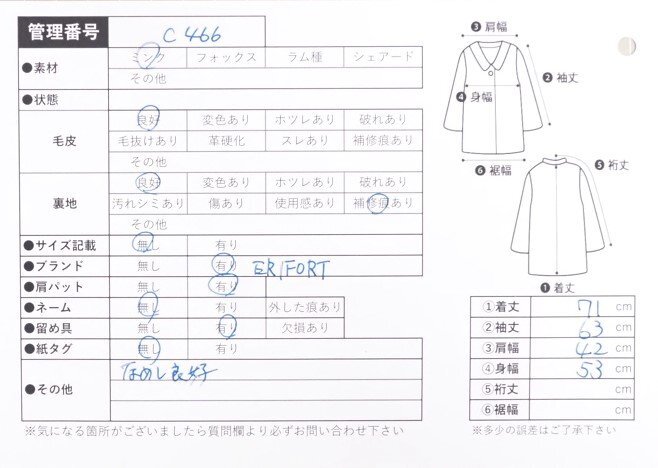 管理番号 C 466
●素材 ミンク フォックス ラム種 シェアード
その他
●状態
毛皮 良好 変色あり ホツレあり 破れあり
毛抜けあり 革硬化 スレあり 補修痕あり
その他
裏地 良好 変色あり ホツレあり 破れあり
汚れシミあり 傷あり 使用感あり 補修痕あり
その他
●サイズ記載 無し 有り
●ブランド 無し 有り ERIFORT
●肩パット 無し 有り
●ネーム 無し 有り 外した痕あり
●留め具 無し 有り 欠損あり
●紙タグ 無し 有り
●その他 なめし良好
※気になる箇所がございましたら質問欄より必ずお問い合わせ下さい
❸肩幅
❷袖丈
❹身幅
❻裾幅
❺裄丈
❶着丈
①着丈 71 cm
②袖丈 63 cm
③肩幅 42 cm
④身幅 53 cm
⑤裄丈 cm
⑥裾幅 cm
※多少の誤差はご了承下さい